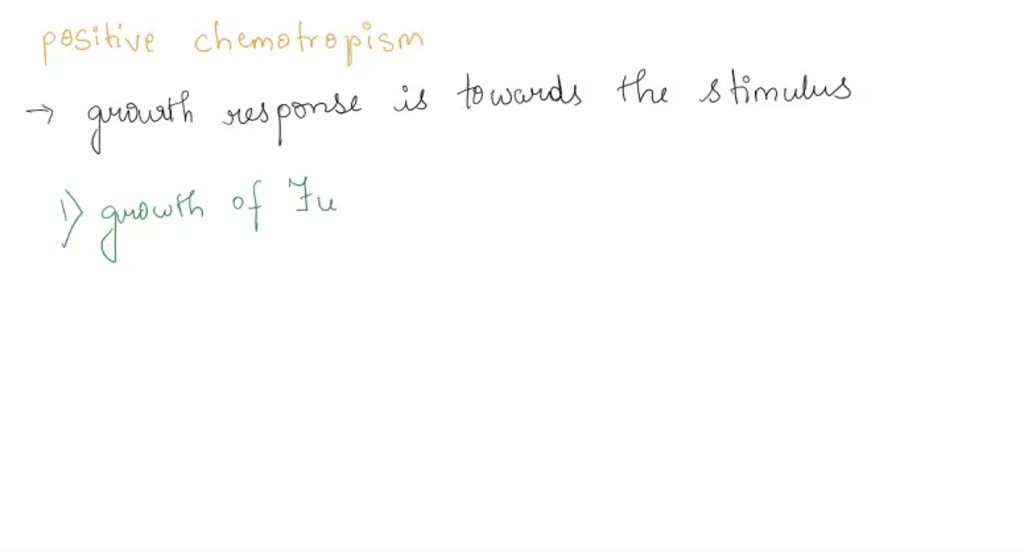 positive chemotropism
→ growth response is towards the stimulus
1) growth of Fu